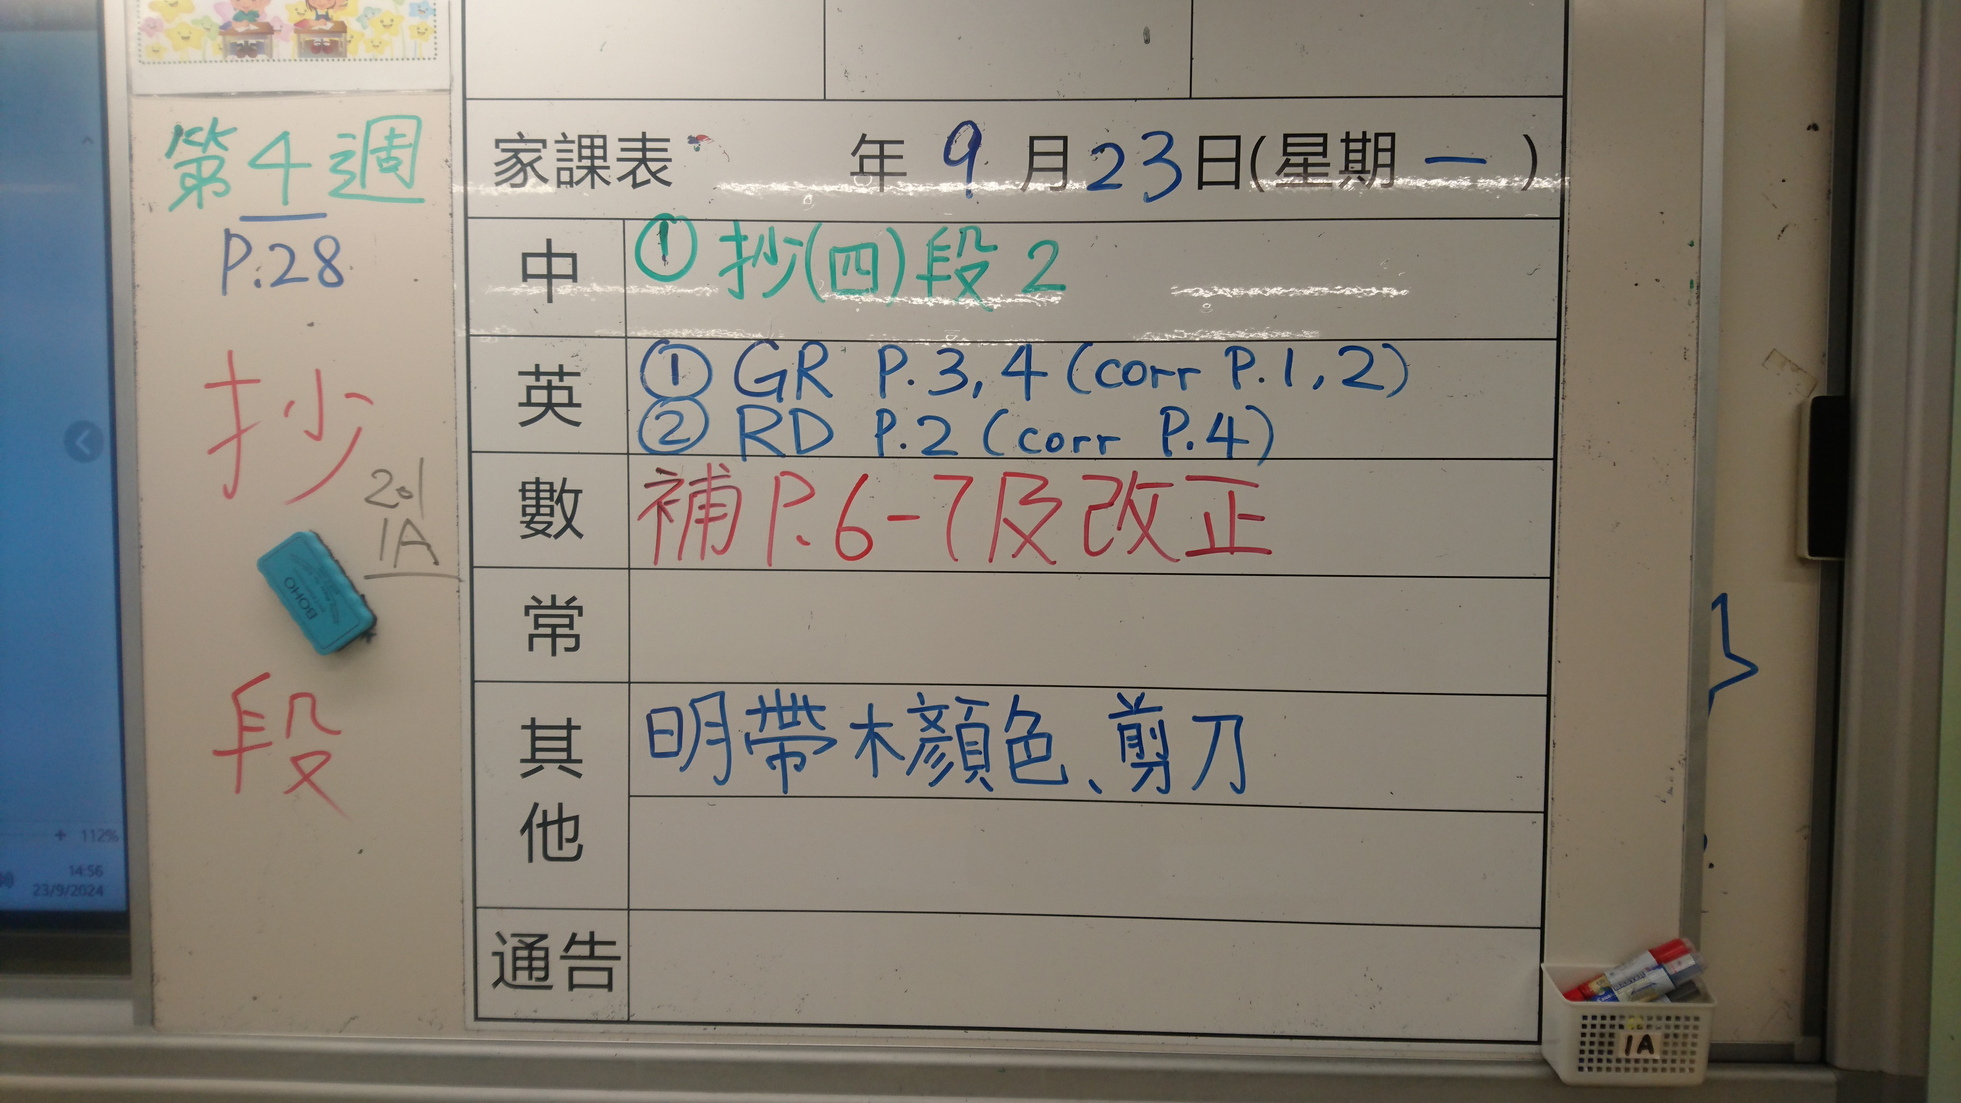 第4週
P.28
抄
201
1A
段
BOHO
家課表 年 9 月 23 日(星期 一 )
中 ① 抄(四)段 2
英 ① GR P.3,4 (corr P.1,2)
② RD P.2 (corr P.4)
數 補 P.6-7 及改正
常
其他 明帶木顏色、剪刀
通告
+ 112%
14:56
23/9/2024
1A